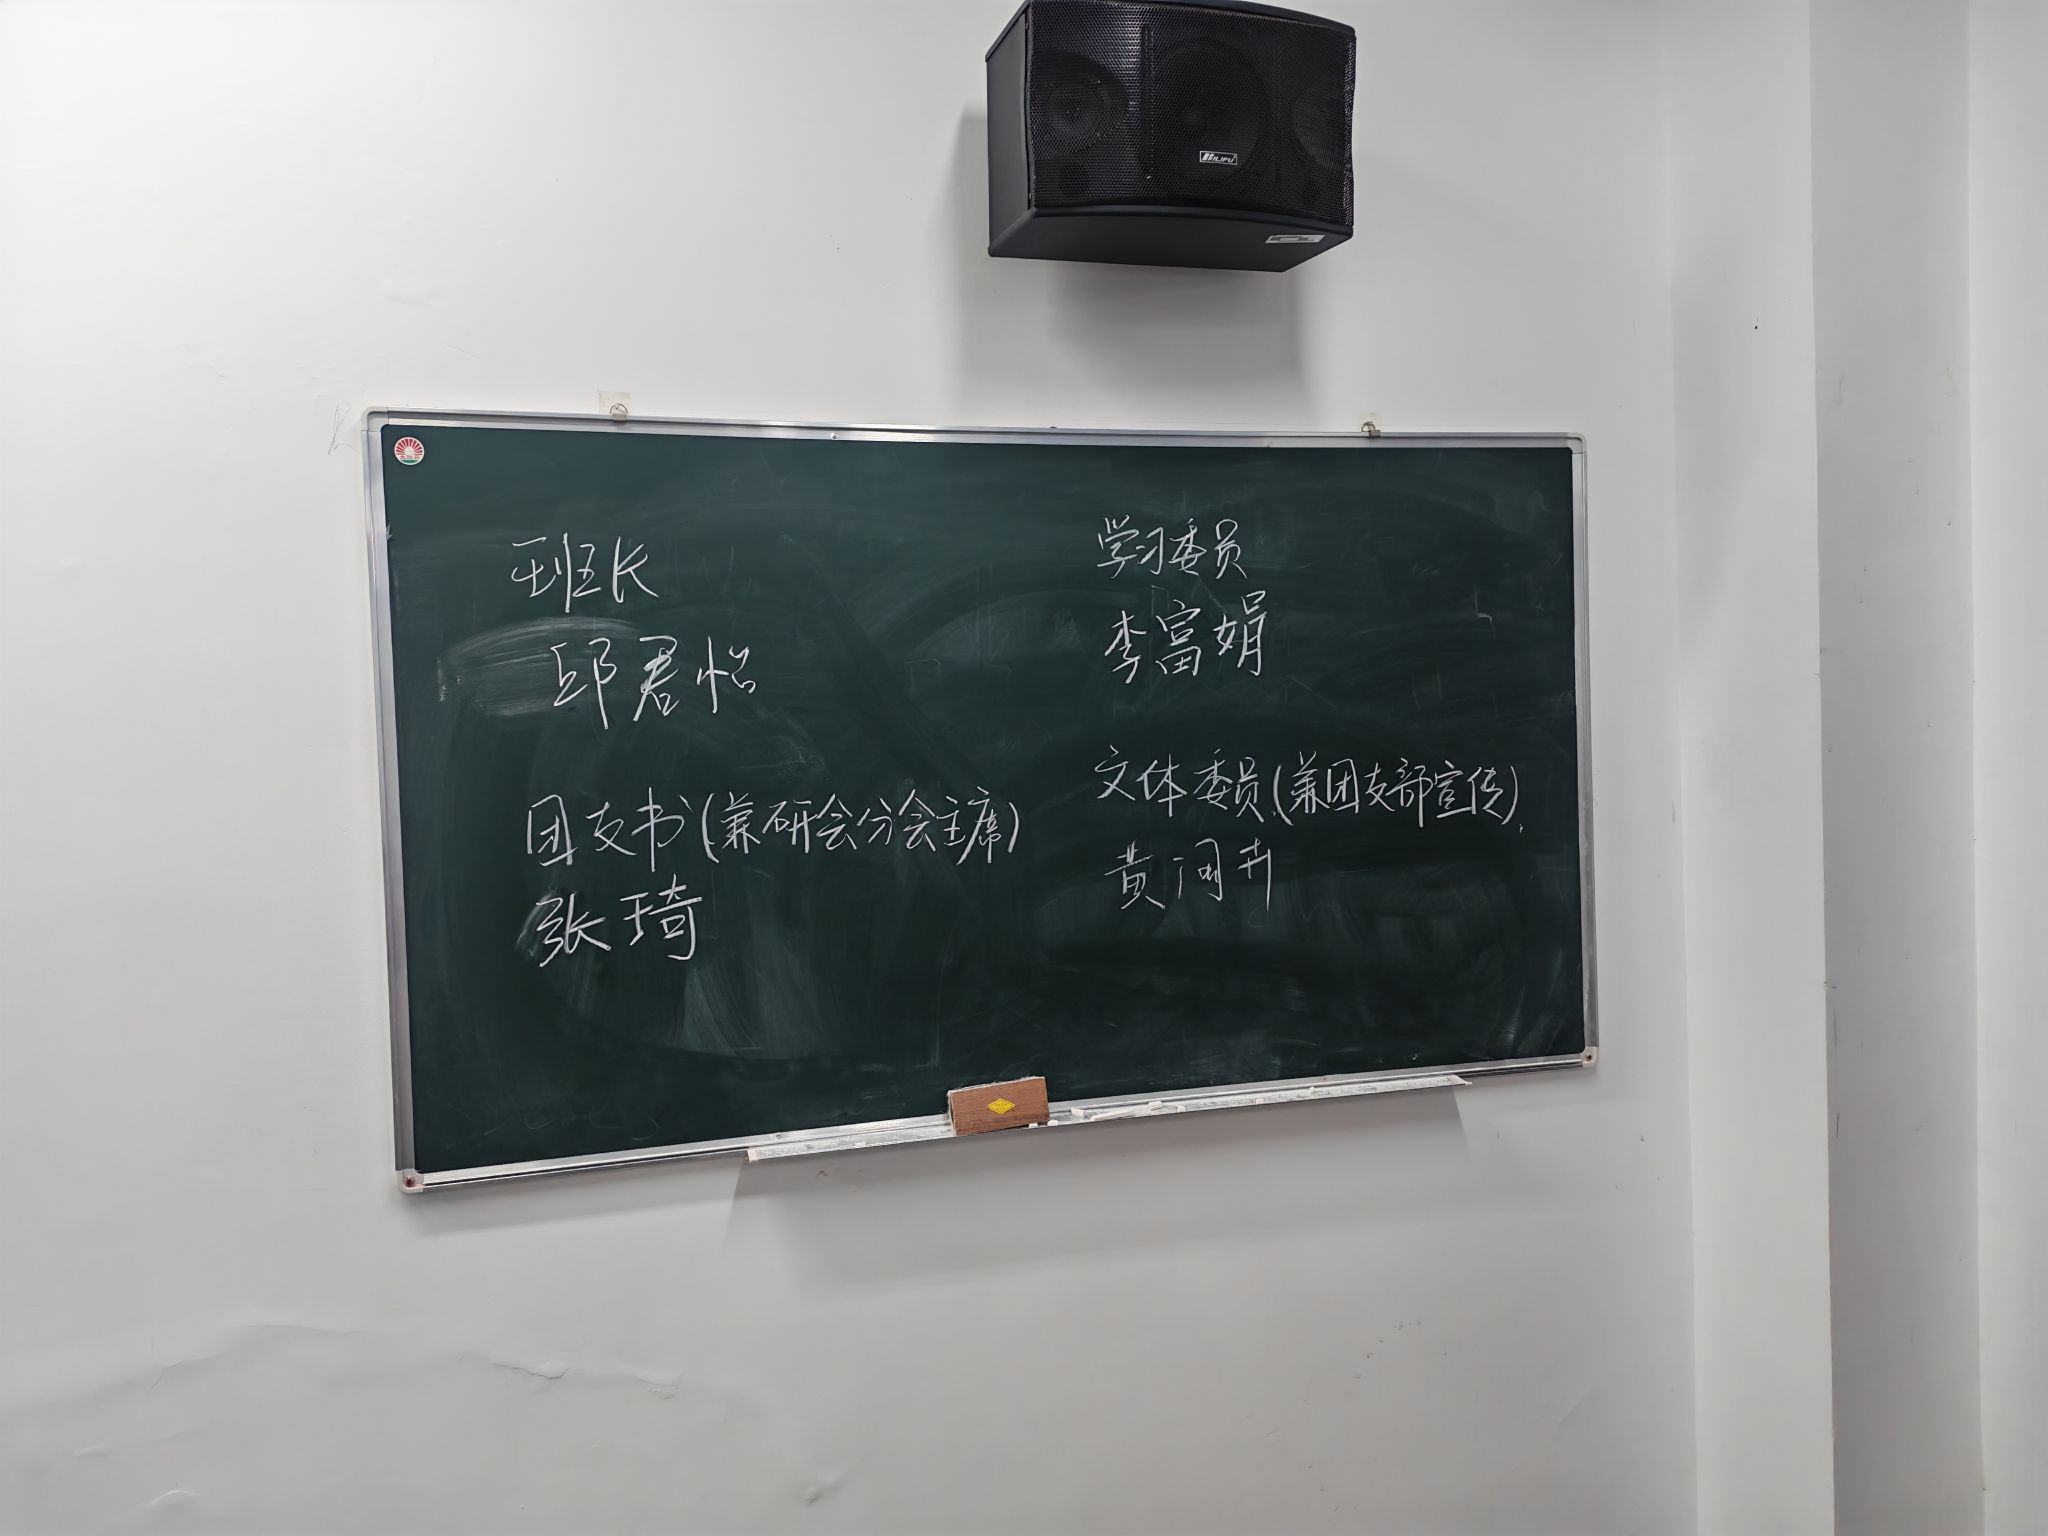 BILIPU
班长
邱君怡
团支书(兼研会分会主席)
张琦
学习委员
李富娟
文体委员(兼团支部宣传)
黄润卉